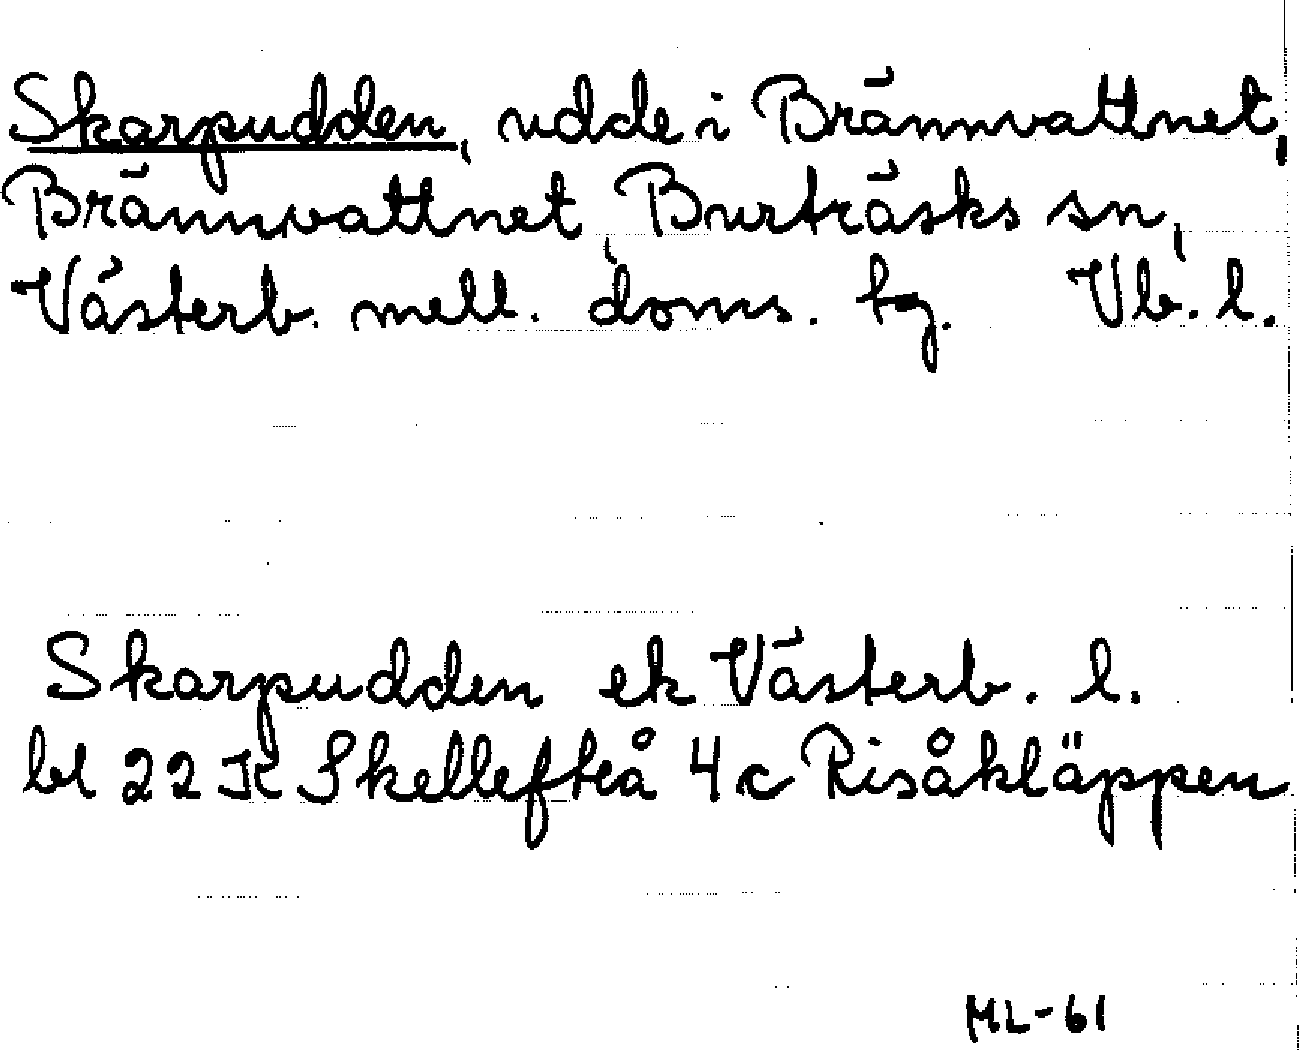 Skarpudden, udde i Brännvattnet,
Brännvattnet, Burträsks sn,
Västerb. mell. doms. tg. Vb. l.
Skarpudden ek Västerb. l.
bl 22 K Skellefteå 4c Risåkläppen
ML-61